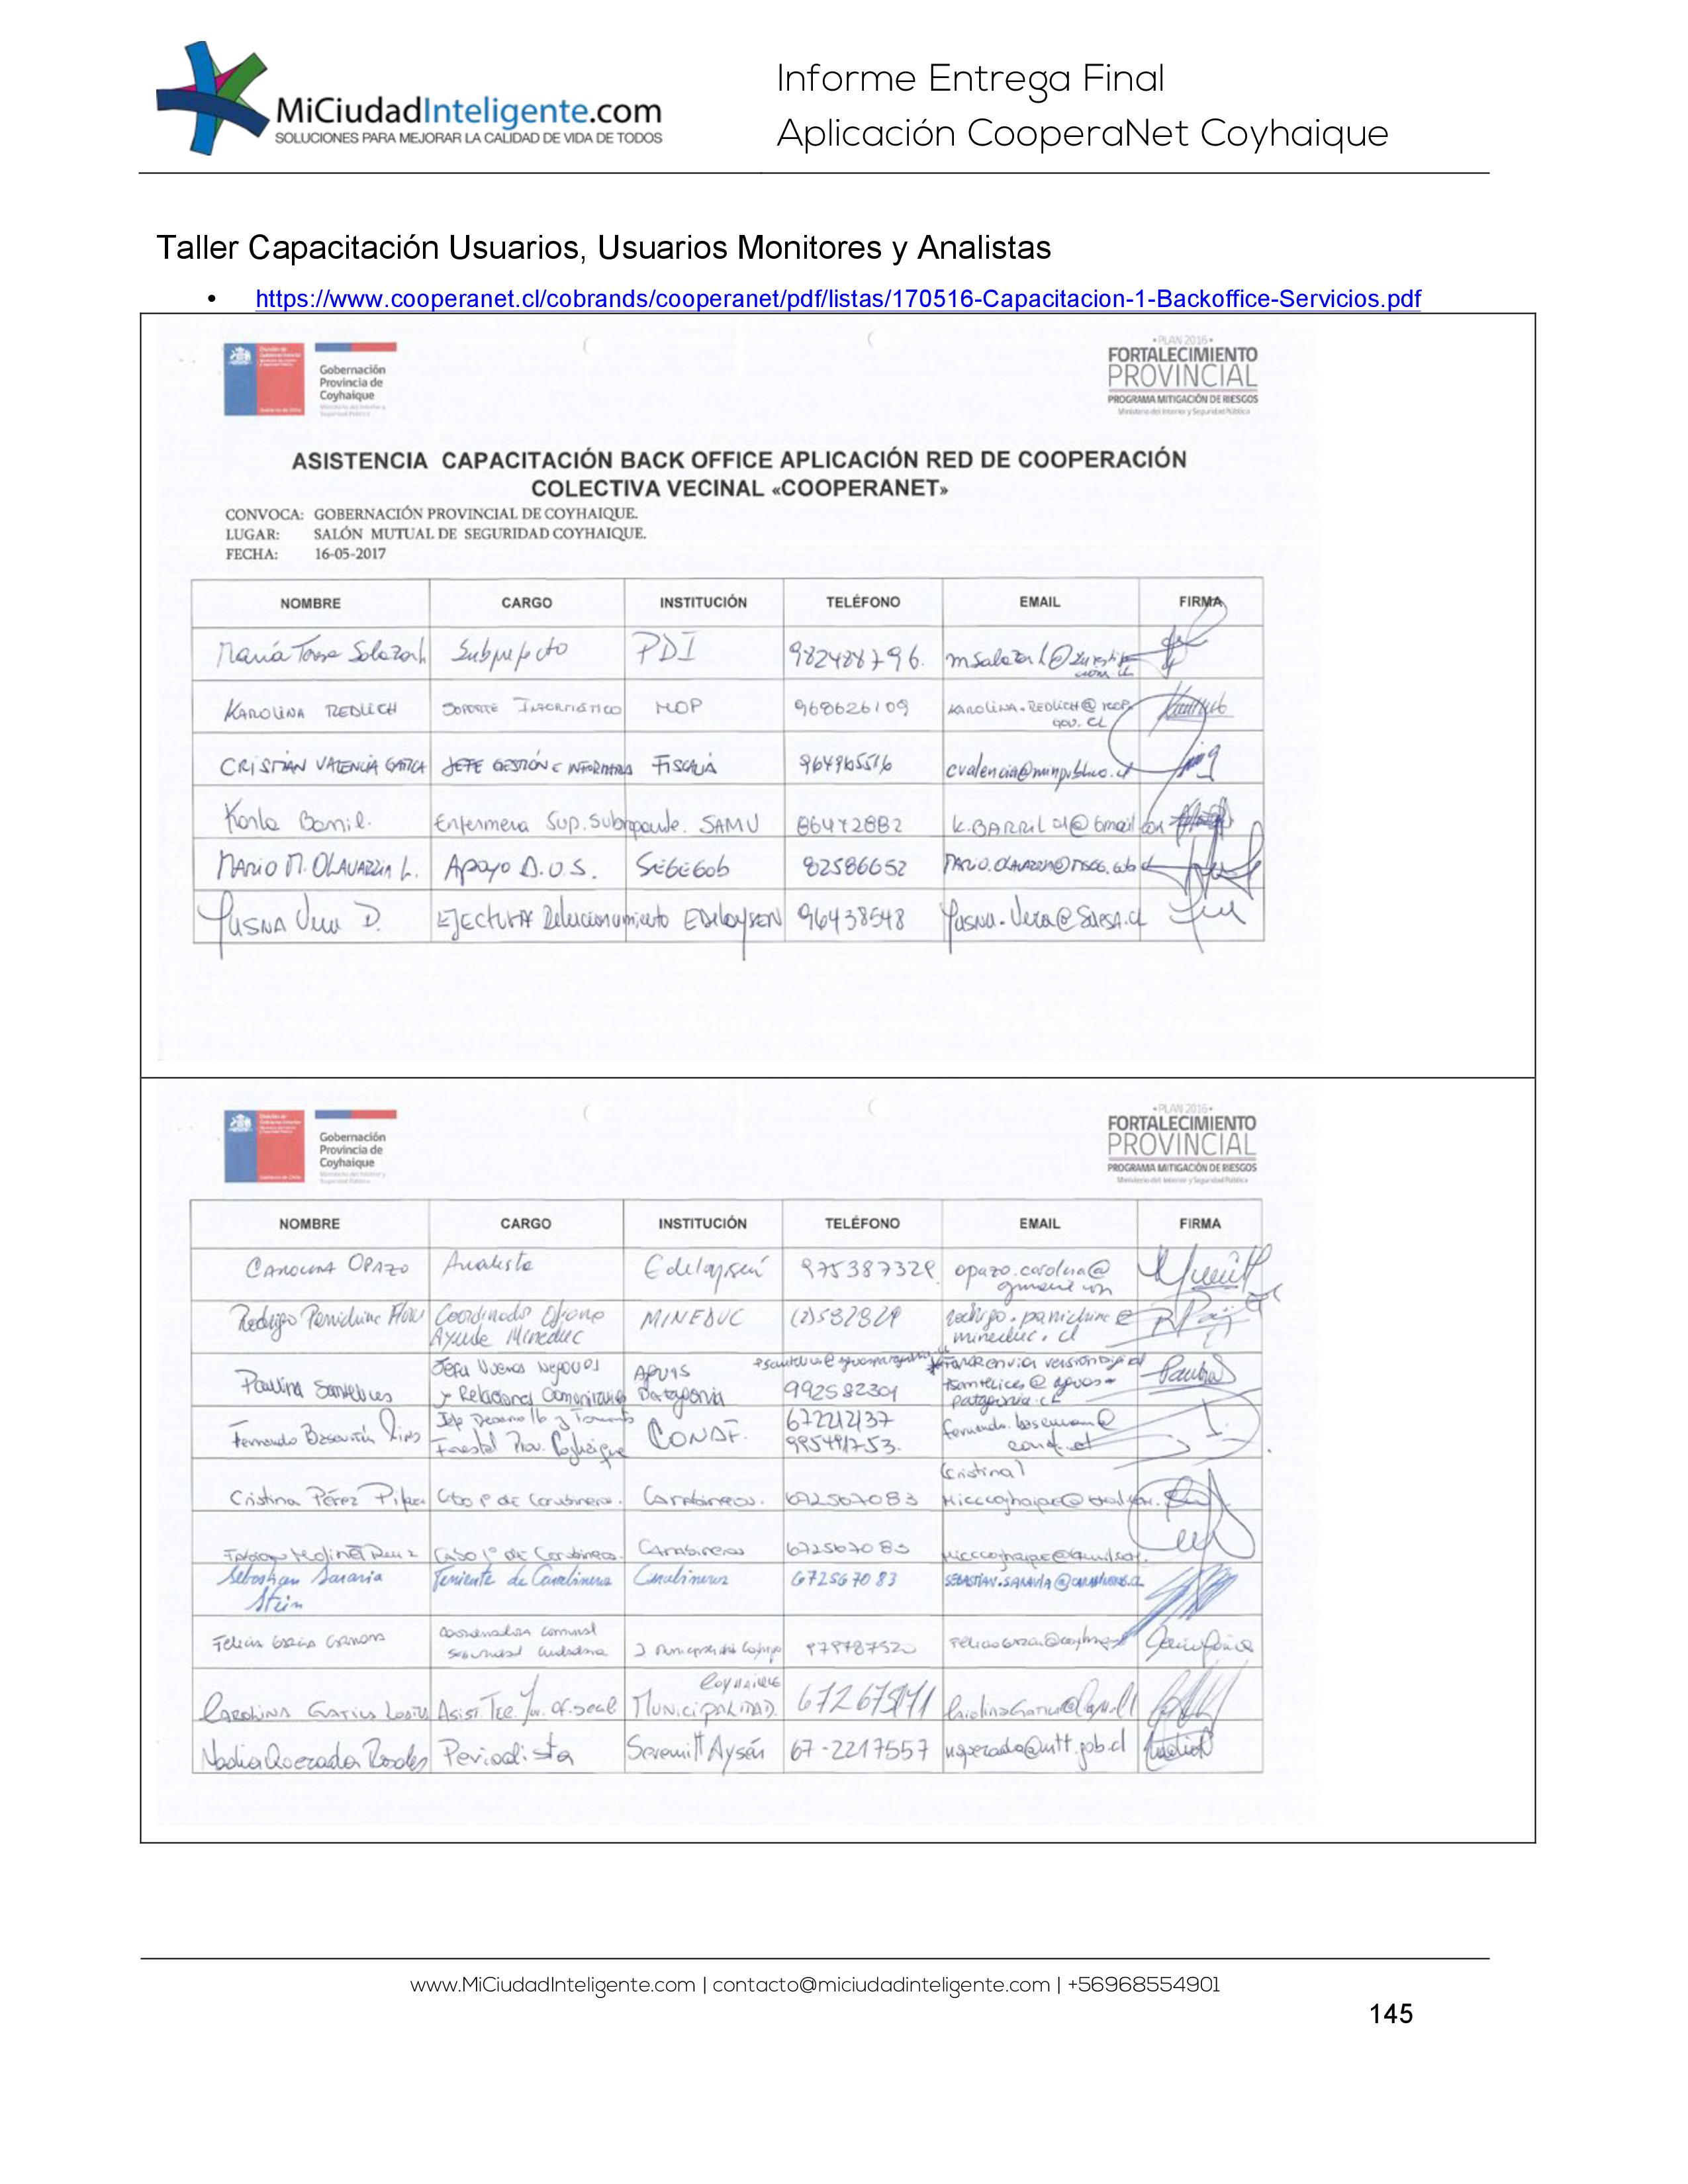 MiCiudadInteligente.com
SOLUCIONES PARA MEJORAR LA CALIDAD DE VIDA DE TODOS
Informe Entrega Final
Aplicación CooperaNet Coyhaique
Taller Capacitación Usuarios, Usuarios Monitores y Analistas
• https://www.cooperanet.cl/cobrands/cooperanet/pdf/listas/170516-Capacitacion-1-Backoffice-Servicios.pdf
Gobernación
Provincia de
Coyhaique
•PLAN 2016•
FORTALECIMIENTO
PROVINCIAL
PROGRAMA MITIGACIÓN DE RIESGOS
Ministerio del Interior y Seguridad Pública
ASISTENCIA CAPACITACIÓN BACK OFFICE APLICACIÓN RED DE COOPERACIÓN
COLECTIVA VECINAL «COOPERANET»
CONVOCA: GOBERNACIÓN PROVINCIAL DE COYHAIQUE.
LUGAR: SALÓN MUTUAL DE SEGURIDAD COYHAIQUE.
FECHA: 16-05-2017
NOMBRE CARGO INSTITUCIÓN TELÉFONO EMAIL FIRMA
María Teresa Subprefecto PDI 982488796.
KAROLINA REDLICH SOPORTE INFORMÁTICO MOP 968626109 KAROLINA.REDLICH@MOP.
GOV.CL
CRISTIAN VALENCIA GATICA JEFE GESTIÓN E INFORMATICA FISCALIA 964965516 cvalencia@minpublico.cl
Karla Enfermera Sup. SAMU 86472882
MARIO M. OLAVARRIA L. Apoyo D.O.S. SEGEGOB 82586652
YUSNA Vera D. EJECUTIVA Relacionamiento EDELAYSEN 96438548 Yusna.Vera@SAESA.cl
Gobernación
Provincia de
Coyhaique
•PLAN 2016•
FORTALECIMIENTO
PROVINCIAL
PROGRAMA MITIGACIÓN DE RIESGOS
Ministerio del Interior y Seguridad Pública
NOMBRE CARGO INSTITUCIÓN TELÉFONO EMAIL FIRMA
CAROLINA OPAZO Analista Edelaysen 975387329 opazo.carolina@
gmail.com
Rodrigo Panichine Coordinador Oficina MINEDUC rodrigo.panichine@
Ayude Mineduc mineduc.cl
Paulina Santelices Jefa Nuevos Negocios AGUAS
y Relaciones Comunitarias Patagonia 992582301 psantelices@aguas
patagonia.cl
Fernando Jefe Desarrollo y Fomento CONAF. 672212137
Forestal Prov. Coyhaique 995491753. conaf.cl
(Cristina)
Cristina Pérez Cabo 1º de Carabineros. Carabineros. 672567083
Molina Cabo 1º de Carabineros. Carabineros 672567083
Sebastian Saravia Teniente de Carabineros Carabineros 672567083 SEBASTIAN.SARAVIA@CARABINEROS.CL
Stein
Coordinadora Comunal
Seguridad Ciudadana 979787520
COYHAIQUE
CAROLINA MUNICIPALIDAD.
Nadia Quezada Rosales Periodista Seremitt Aysén 67-2217557 nquezada@mtt.gob.cl
www.MiCiudadInteligente.com | contacto@miciudadinteligente.com | +56968554901
145